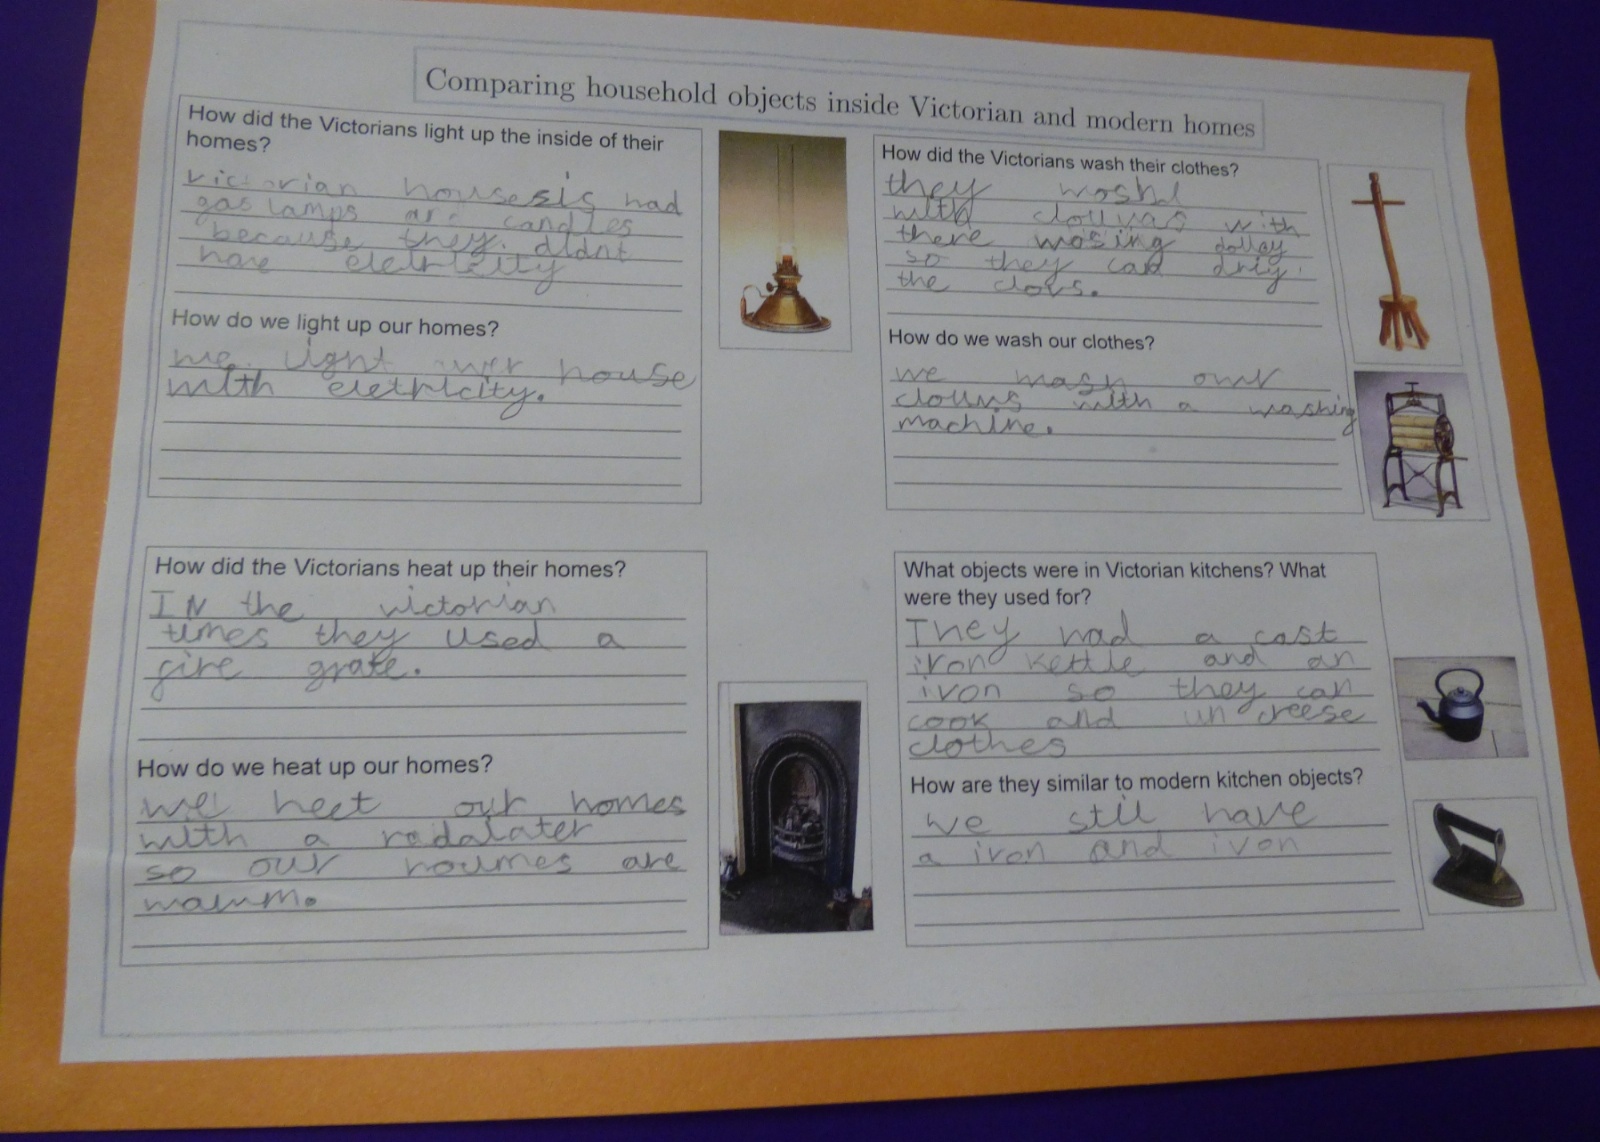 Comparing household objects inside Victorian and modern homes
How did the Victorians light up the inside of their
homes?
victorian housesis had
gas lamps are candles
because they didnt
have eletricity
How do we light up our homes?
we light ower house
with eletricity.
How did the Victorians wash their clothes?
they woshd
with clouvas with
there wosing dolley
so they can driy
the clovs.
How do we wash our clothes?
we wash our
clouvs with a washing
machine.
How did the Victorians heat up their homes?
IN the victorian
times they used a
fire grate.
How do we heat up our homes?
we heet our homes
with a radalater
so our houmes are
waurm.
What objects were in Victorian kitchens? What
were they used for?
They had a cast
iron kettle and an
iron so they can
cook and un creese
clothes
How are they similar to modern kitchen objects?
we still have
a iron and iron